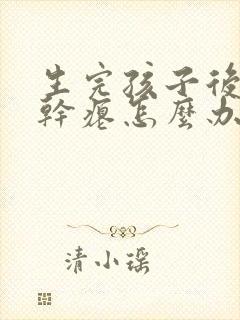 生完孩子後
幹瘪怎麼办
清小瑶